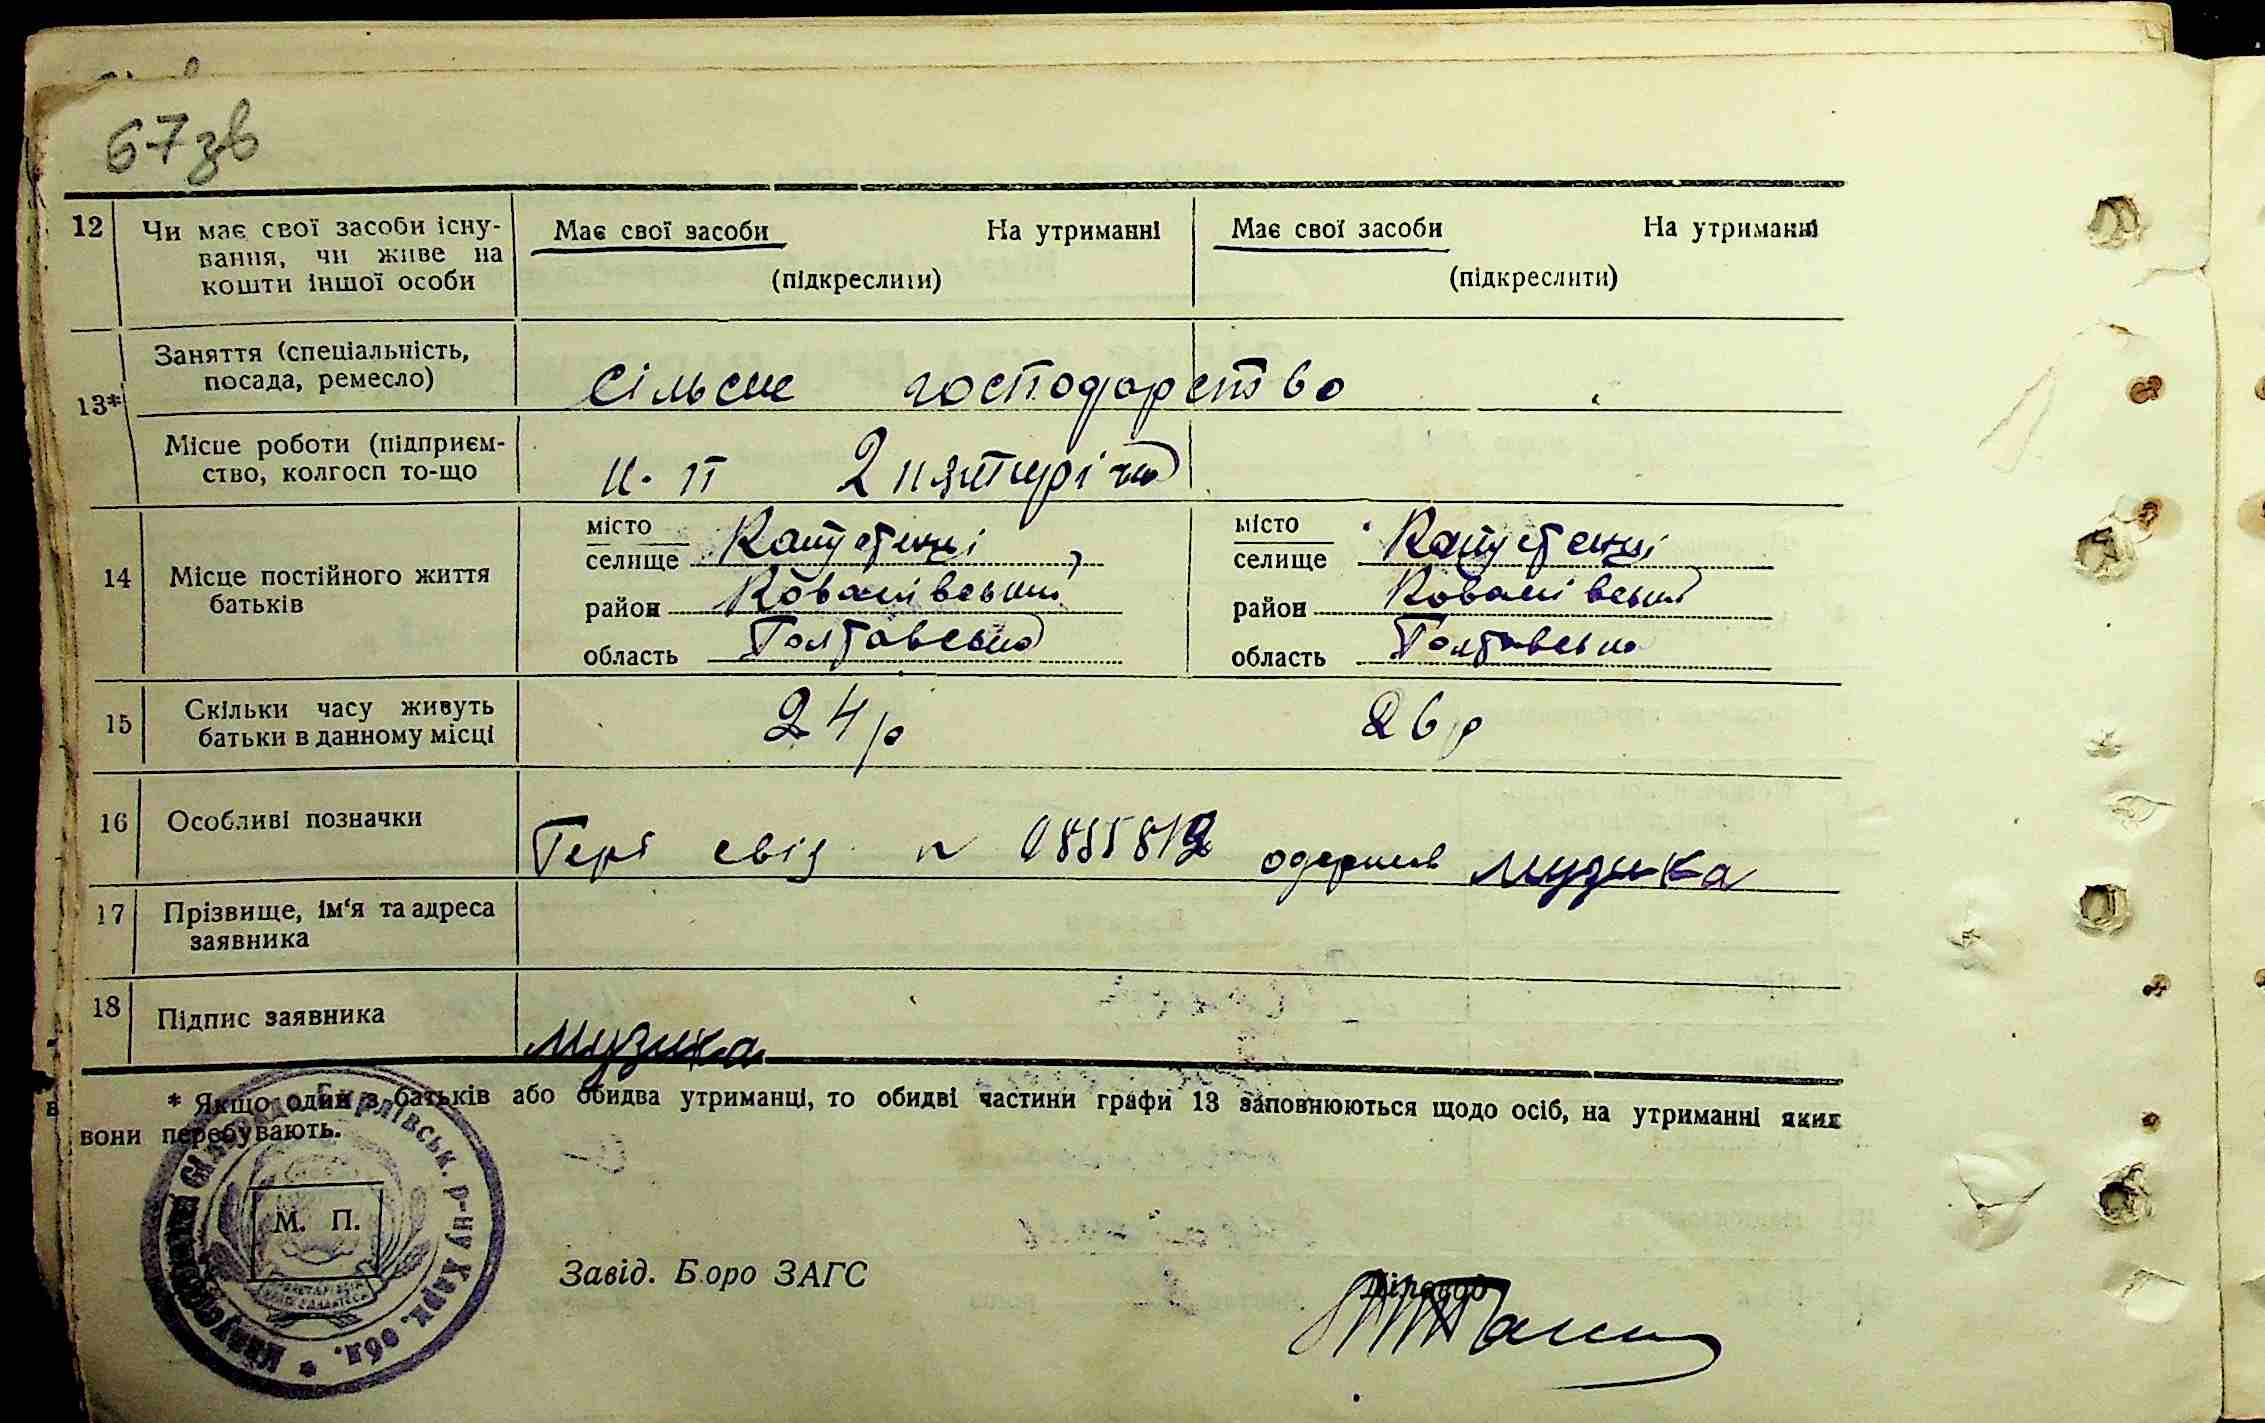 67зв
12 Чи має свої засоби існу-
вання, чи живе на
кошти іншої особи
Має свої засоби На утриманні
(підкреслити)
Має свої засоби На утриманні
(підкреслити)
13*
Заняття (спеціальність,
посада, ремесло)
сільське господарство
Місце роботи (підприєм-
ство, колгосп то-що
2 пятирічка
14 Місце постійного життя
батьків
місто
селище Капустенці
район Ковалівський
область Полтавська
місто
селище Капустенці
район Ковалівський
область Полтавська
15 Скільки часу живуть
батьки в данному місці
24 р
26 р
16 Особливі позначки
свід n 0855812 одержав Музика
17 Прізвище, ім'я та адреса
заявника
18 Підпис заявника
Музика
* Якщо один з батьків або обидва утриманці, то обидві частини графи 13 заповнюються щодо осіб, на утриманні яких
вони перебувають.
М. П.
сільрада Бирлівськ. р-ну Харк. обл. *
Завід. Бюро ЗАГС